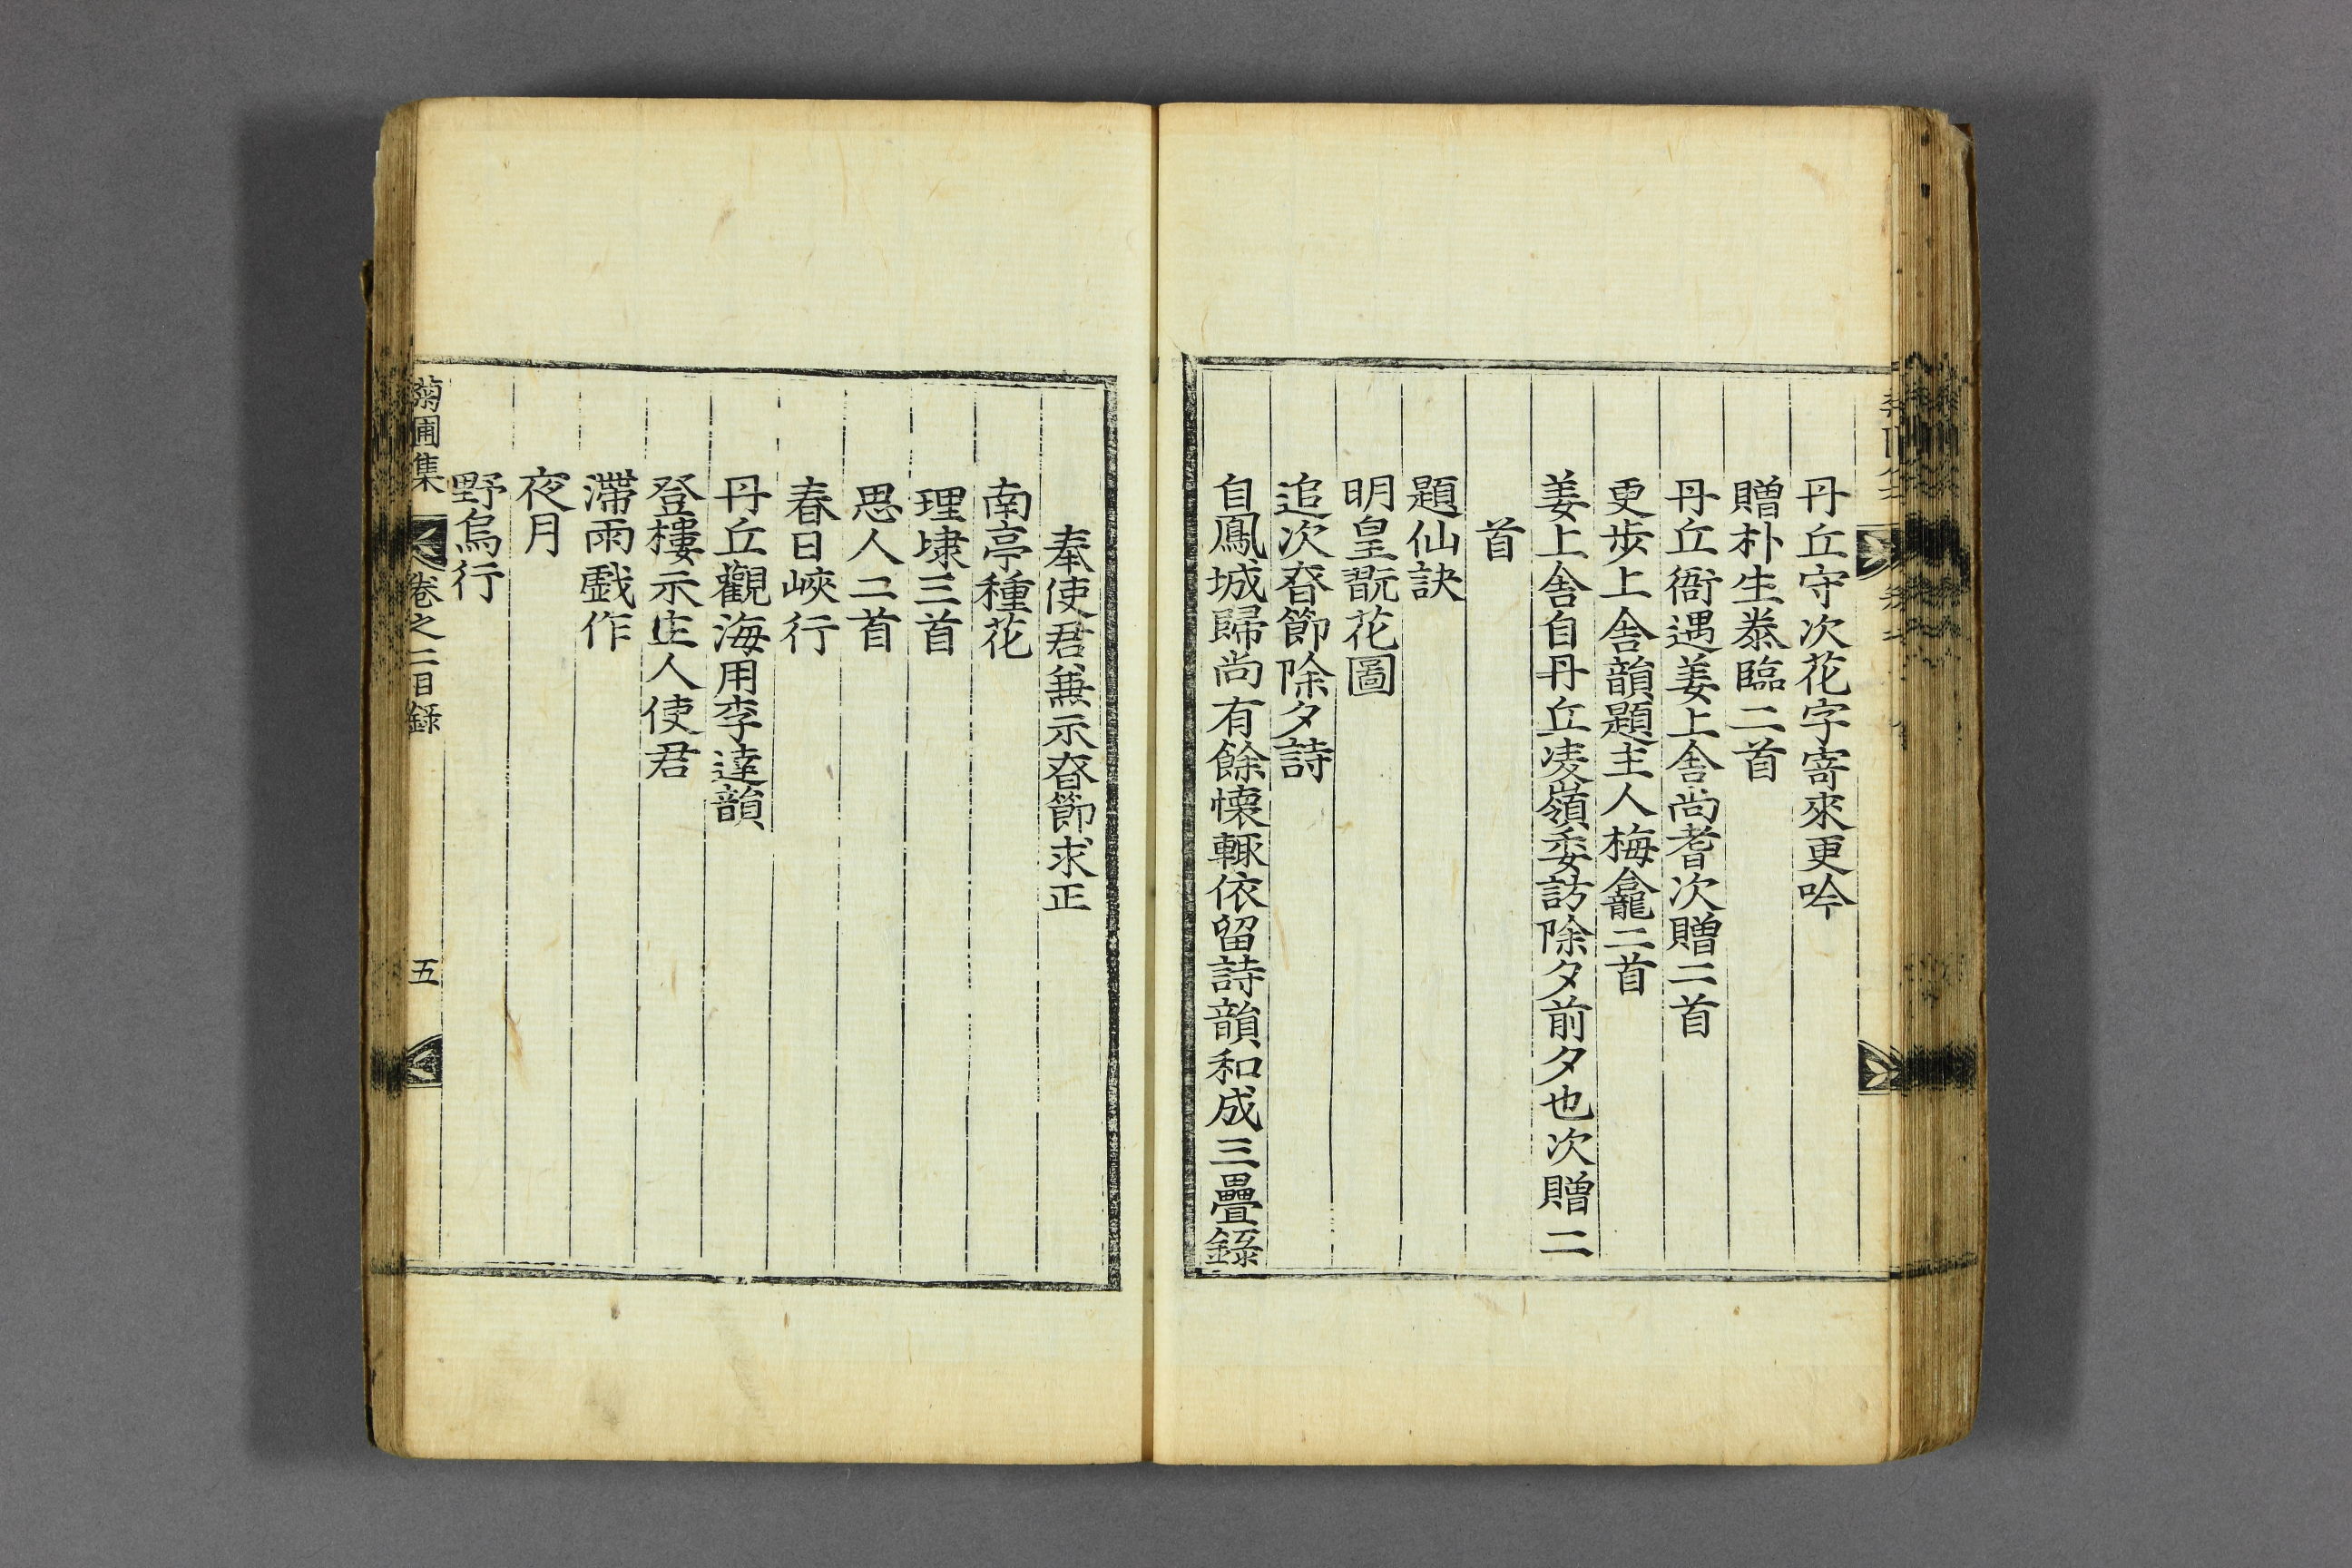 丹丘守次花字寄來更吟
贈朴生恭臨二首
丹丘衙遇姜上舍尚耆次贈二首
更步上舍韻題主人梅龕二首
姜上舍自丹丘凌嶺委訪除夕前夕也次贈二
首
題仙訣
明皇翫花圖
追次眘節除夕詩
自鳳城歸尚有餘懷輒依留詩韻和成三疊錄
奉使君兼示眘節求正
南亭種花
理埭三首
思人二首
春日峽行
丹丘觀海用李達韻
登樓示主人使君
滯雨戲作
夜月
野烏行
菊圃集 卷之二目錄 五